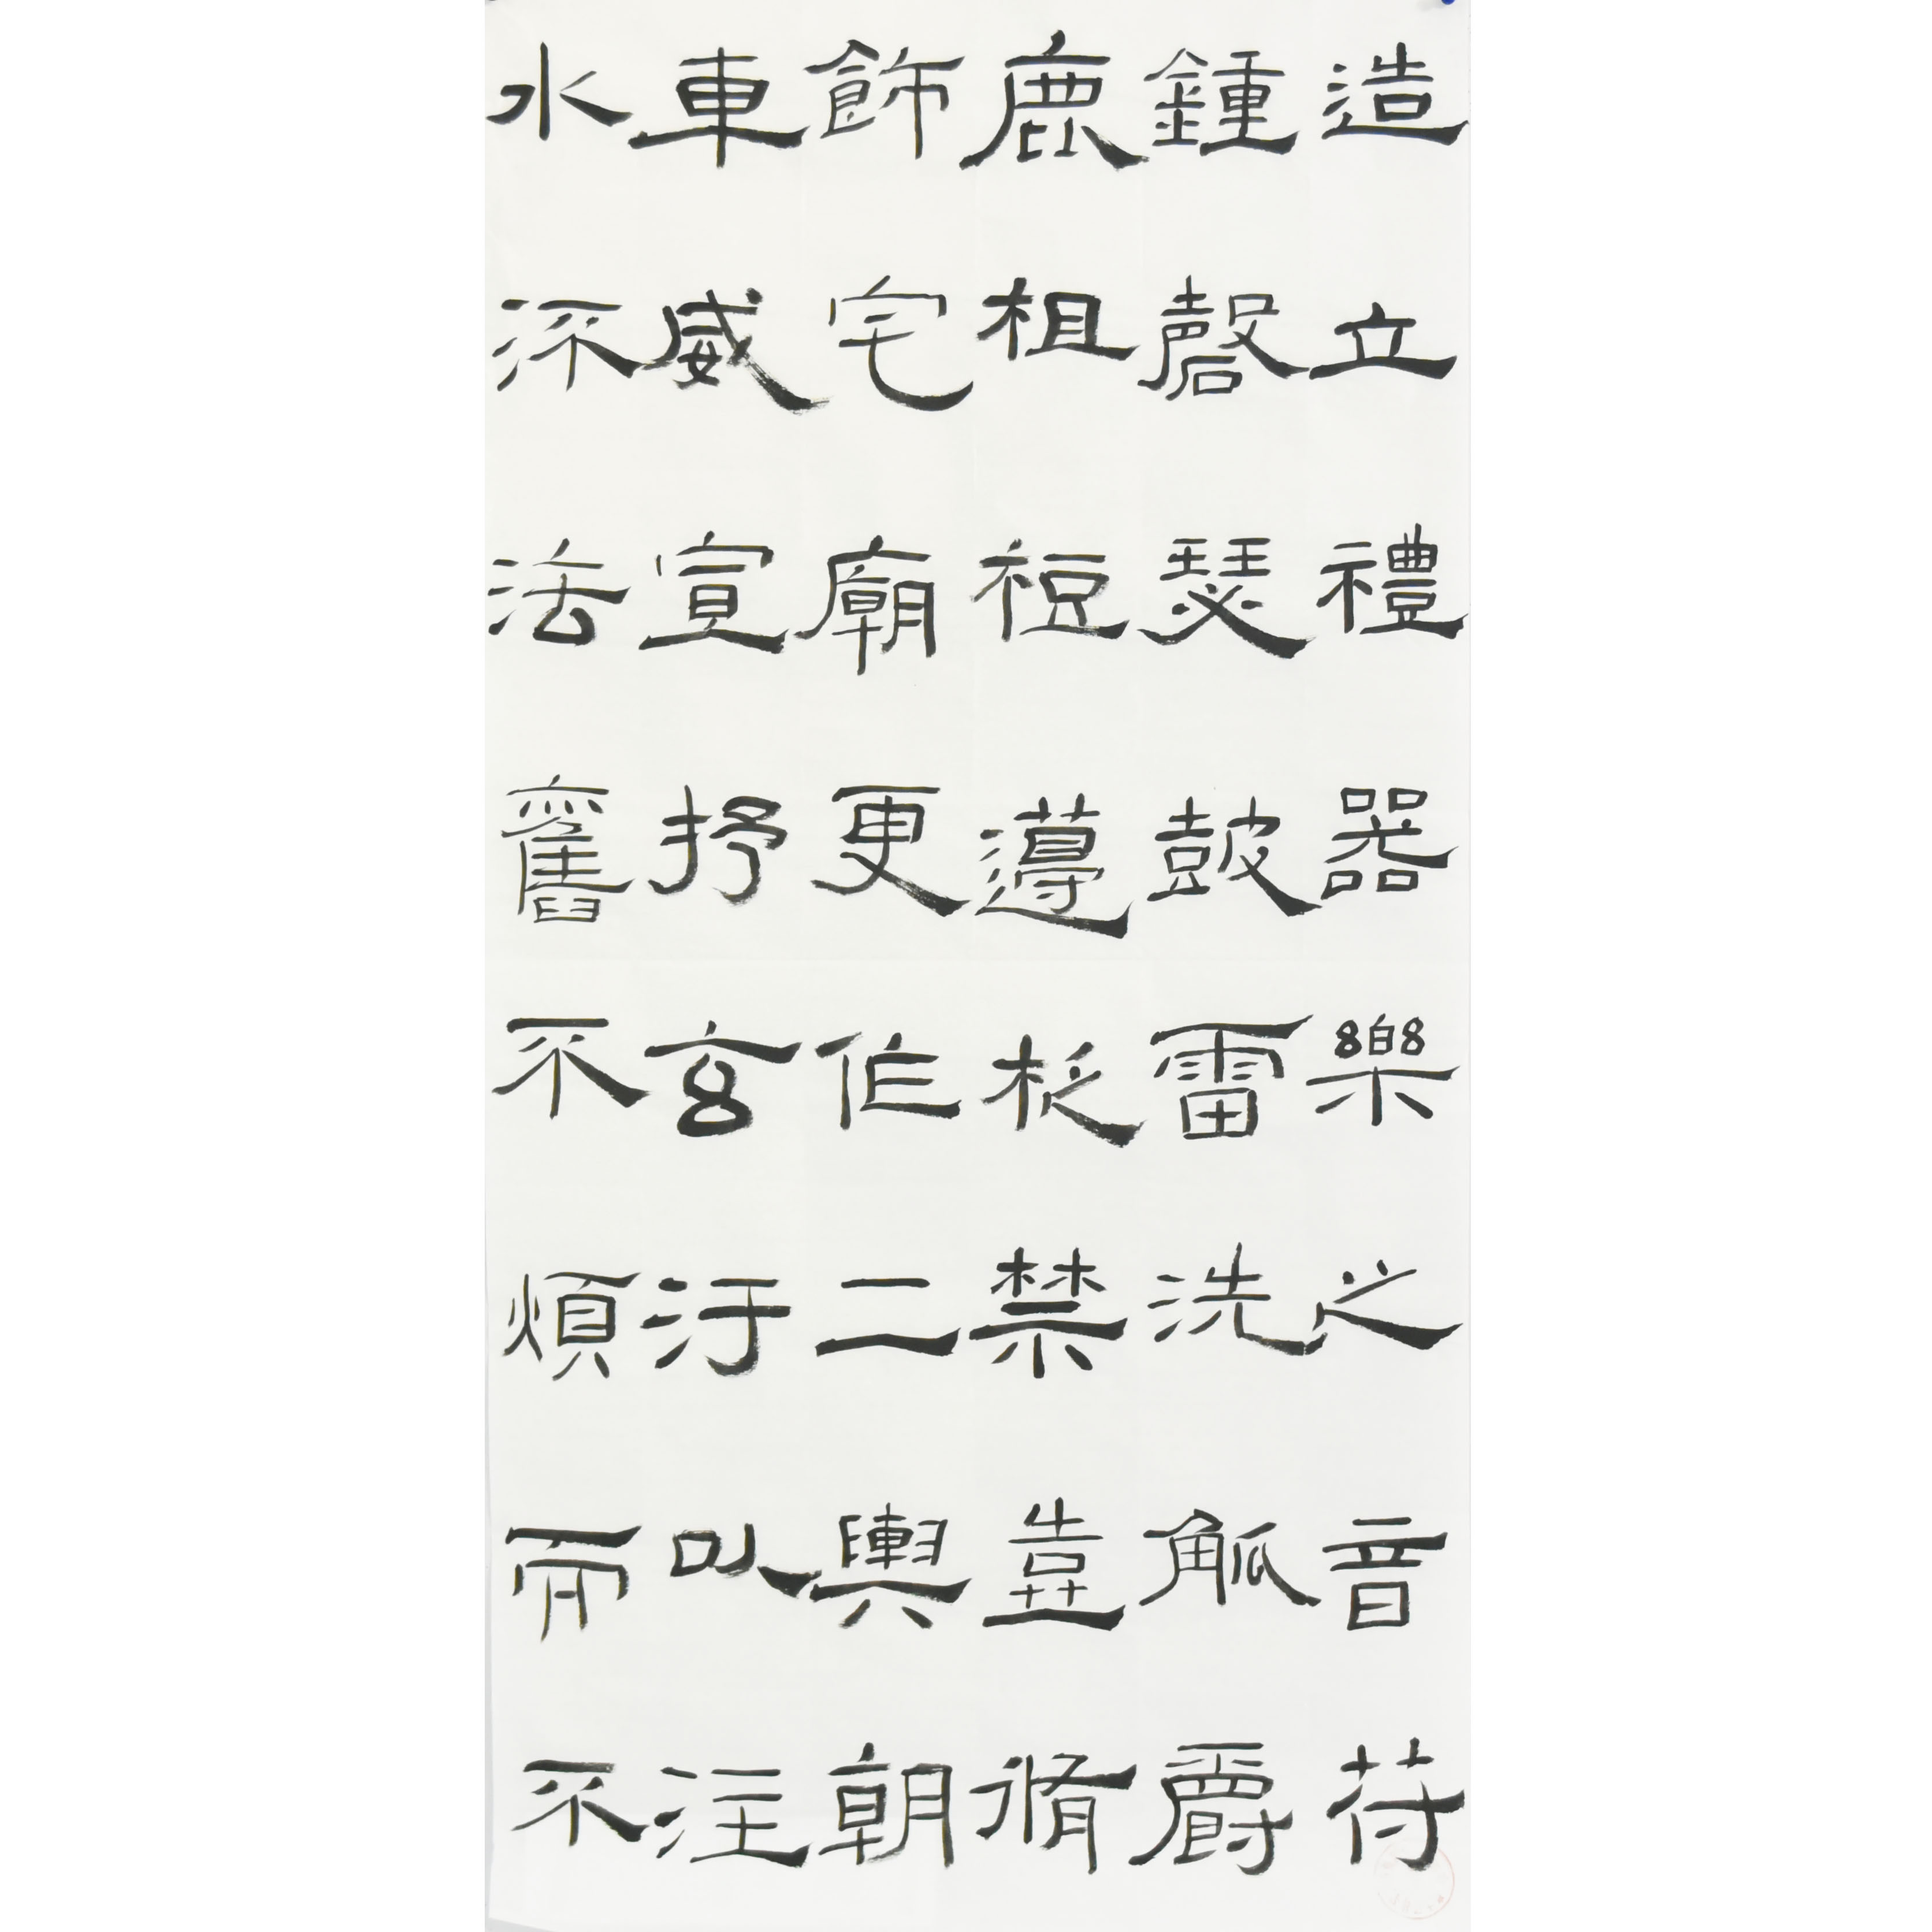 造立禮器樂之音苻
鍾磬瑟鼓雷洗觚爵
鹿柤梪籩柉禁壺脩
飾宅廟更作二輿朝
車威宣抒玄汙以注
水流法舊不煩而不